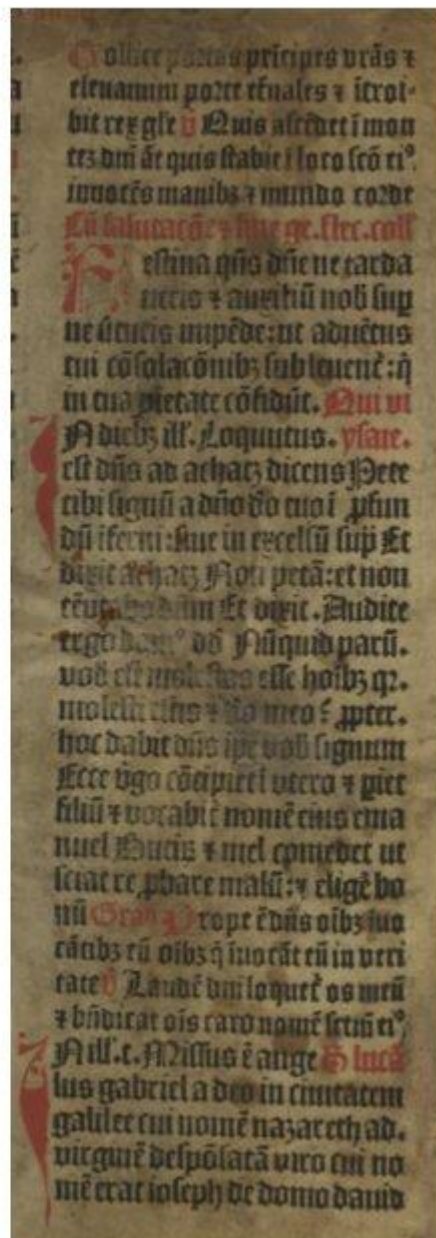 Tollite portas prīcipes vr̄as ⁊
eleuamini porte et̄nales ⁊ ītroi-
bit rex gl̄e V̄ Quis ascēdet ī mon
tez dn̄i āt quis stabit ī loco scō eiꝰ.
innocēs manibꝫ ⁊ mundo corde
estina qs̄ dn̄e ne tarda
ueris ⁊ auxiliū nob̄ suꝑ
ne v̄tutis impēde: ut aduētus
tui cōsolacōnibꝫ subleuent̄: q̄
in tua pietate cōfidūt. Qui vi
N diebꝫ ill̄. Loquutus. ysaie.
est dn̄s ad achatz dicens Pete
tibi signū a dn̄o dō tuo ī ꝓfun
dū īferni: siue in excelsū sup̄ Et
dixit achatz Non petā: et non
tēptabo dn̄m Et dixit. Audite
ergo dauiꝰ dd̄ Nūquid parū.
vob̄ est molestos esse hoībꝫ qr.
molesti estis ⁊ dō meo? ꝓpter.
hoc dabit dn̄s ip̄e vob̄ signum
Ecce v̄go cōcipiet ī vtero ⁊ piet
filiū ⁊ vocabit̄ nomē eius ema
nuel Butir̄ ⁊ mel comedet ut
sciat re ꝓbare malū: ⁊ eligē bo
nū Grad̄ Prope ē dn̄s oībꝫ īuo
cātibꝫ eū oībꝫ q̄ īuocāt eū in veri
tate V̄ Laudē dn̄i loquet̄ os meū
⁊ bn̄dicat oīs caro nomē sctm̄ eiꝰ.
N ill̄. t. Missus ē ange S̄ lucā
lus gabriel a deo in ciuitatem
galilee cui nomē nazareth ad.
virginē despōsatā viro cui no
mē erat ioseph de domo dauid